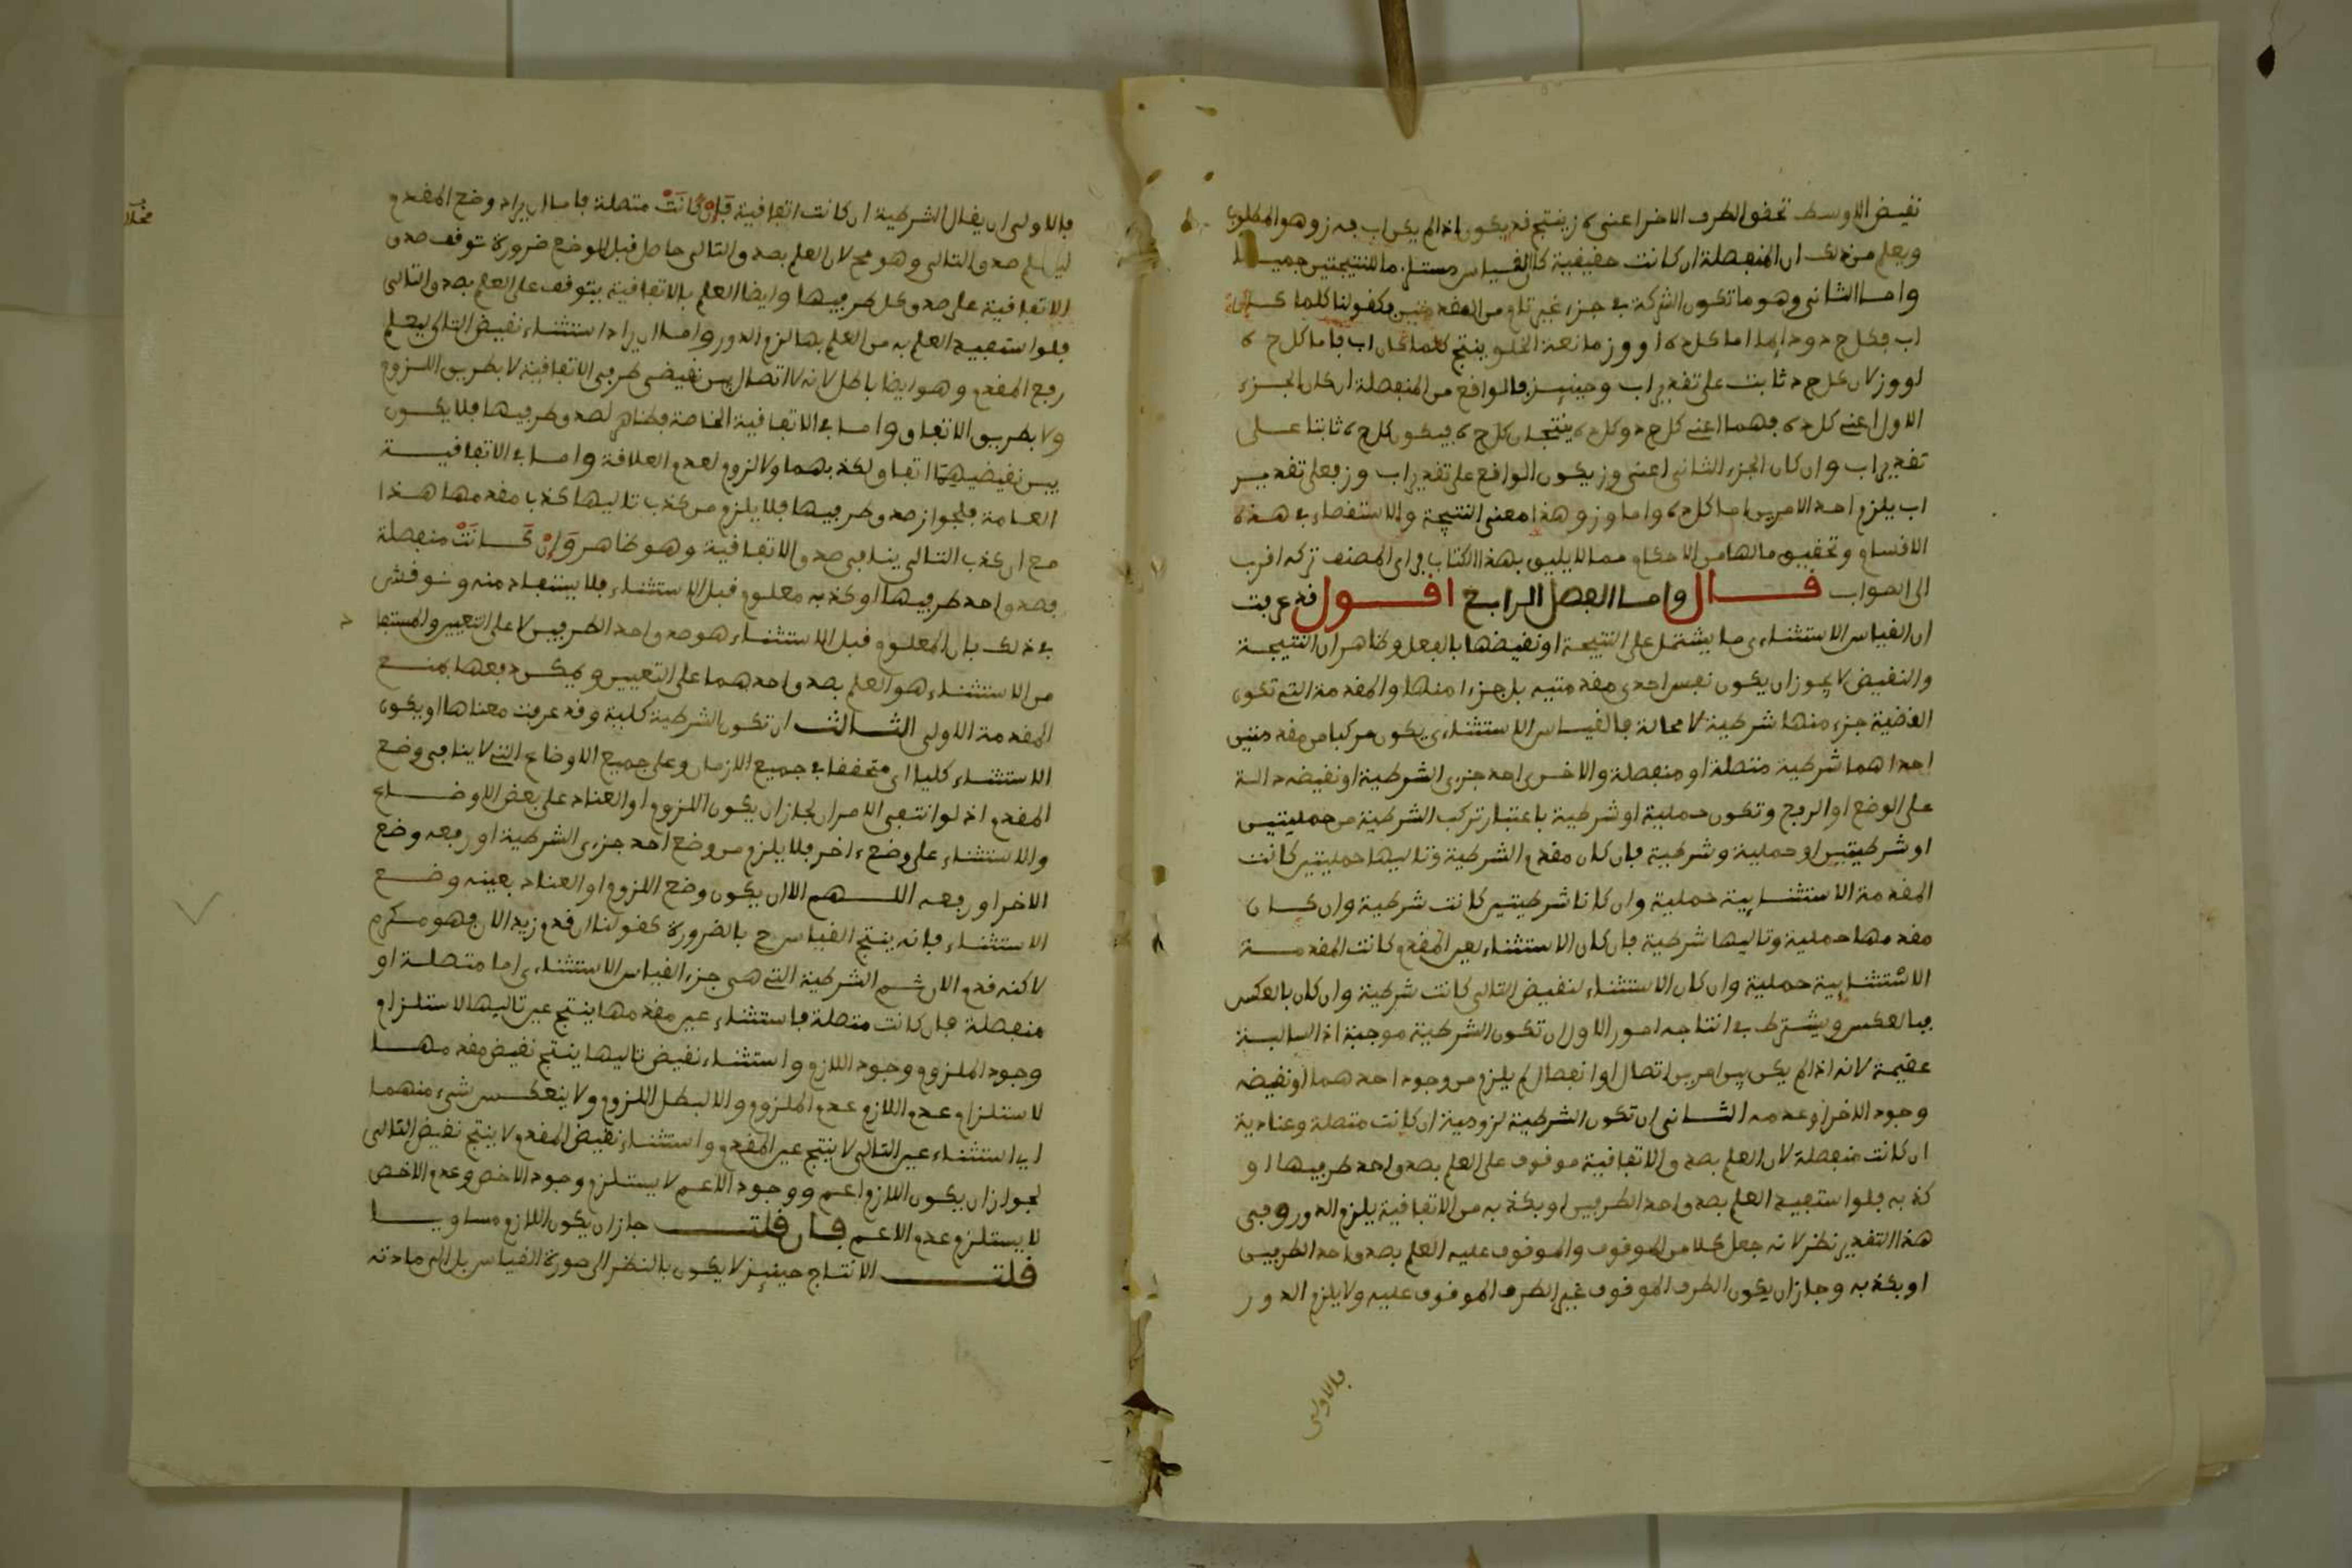 نقيض الاوسط تحقق الطرف الاخر اعنى ه ز ينتج قد يكون اذا لم يكن اب فه ز وهو المطلوب
ويعلم من ذلك ان المنفصلة ان كانت حقيقية كان القياس مستلزما للنتيجتين جميعا
واما الثانى وهو ما تكون الشركة في جزء غير تام من المقدمتين فكقولنا كلما كان
اب فكل ج د ودايما اما كل د ه او و ز مانعة الخلو ينتج كلما كان اب فاما كل ج ه
او و ز لان كل ج د ثابت على تقدير اب وحينيذ فالواقع من المنفصلة ان كان الجزء
الاول اعنى كل د ه فهما اعنى كل ج د وكل د ه ينتجان كل ج ه فيكون كل ج ه ثابتا على
تقدير اب وان كان الجزء الثانى اعنى و ز يكون الواقع على تقدير اب و ز فعلى تقدير
اب يلزم احد الامرين اما كل ج ه واما و ز وهذا معنى النتيجة والاستقصاء في هذه
الاقسام وتحقيق ما لها من الاحكام مما لا يليق بهذا الكتاب فراى المصنف تركه اقرب
الى الصواب قال واما الفصل الرابع اقول قد عرفت
ان القياس الاستثناءى ما يشتمل على النتيجة او نقيضها بالفعل وظاهر ان النتيجة
والنقيض لا يجوز ان يكون نفس احدى مقدمتيه بل جزءا منها والمقدمة التى تكون
القضية جزء منها شرطية لا محالة فالقياس الاستثناءى يكون مركبا من مقدمتين
احداهما شرطية متصلة او منفصلة والاخرى احد جزءى الشرطية او نقيضه دالة
على الوضع او الرفع وتكون حملية او شرطية باعتبار تركب الشرطية من حمليتين
او شرطيتين او حملية وشرطية فان كان مقدم الشرطية وتاليها حمليتين كانت
المقدمة الاستثنايية حملية وان كانا شرطيتين كانت شرطية وان كان
مقدمها حملية وتاليها شرطية فان كان الاستثناء لعين المقدم كانت المقدمة
الاستثنايية حملية وان كان الاستثناء لنقيض التالى كانت شرطية وان كان بالعكس
فبالعكس ويشترط في انتاجه امور الاول ان تكون الشرطية موجبة اذ السالبة
عقيمة لانه اذا لم يكن بين امرين اتصال او انفصال لم يلزم من وجود احدهما او نقيضه
وجود الاخر او عدمه الثانى ان تكون الشرطية لزومية ان كانت متصلة وعنادية
ان كانت منفصلة لان العلم بصدق الاتفاقية موقوف على العلم بصدق احد طرفيها او
كذبه فلو استفيد العلم بصدق احد الطرفين او بكذبه من الاتفاقية يلزم الدور وفي
هذا التقدير نظر لانه جعل كلا من الموقوف والموقوف عليه العلم بصدق احد الطرفين
او بكذبه وجاز ان يكون الطرف الموقوف غير الطرف الموقوف عليه ولا يلزم الدور
فالاولى
فالاولى ان يقال الشرطية ان كانت اتفاقية فان كانت متصلة فاما ان يراد وضع المقدم
ليعلم صدق التالى وهو مح لان العلم بصدق التالى حاصل قبل الوضع ضرورة توقف صدق
الاتفاقية على صدق كل طرفيها وايضا العلم بالاتفاقية يتوقف على العلم بصدق التالى
فلو استفيد العلم به من العلم بها لزم الدور واما ان يراد استثناء نقيض التالى ليعلم
رفع المقدم وهو ايضا باطل لانه لا اتصال بين نقيضى طرفى الاتفاقية لا بطريق اللزوم
ولا بطريق الاتفاق واما في الاتفاقية الخاصة فظاهر لصدق طرفيها فلا يكون
بين نقيضيهما اتفاق لكذبهما ولا لزوم لعدم العلاقة واما في الاتفاقية
العامة فلجواز صدق طرفيها فلا يلزم من كذب تاليها كذب مقدمها هذا
مع ان كذب التالى ينافى صدق الاتفاقية وهو ظاهر وان كانت منفصلة
فصدق احد طرفيها او كذبه معلوم قبل الاستثناء فلا يستفاد منه ونوقش
في ذلك بان المعلوم قبل الاستثناء هو صدق احد الطرفين لا على التعيين والمستفا
د
من الاستثناء هو العلم بصدق احدهما على التعيين ويمكن دفعها بمنع
المقدمة الاولى الثالث ان تكون الشرطية كلية وقد عرفت معناها او يكون
الاستثناء كليا اى متحققا في جميع الازمان وعلى جميع الاوضاع التى لا ينافى وضع
المقدم اذ لو انتفى الامران لجاز ان يكون اللزوم او العناد على بعض الاوضاع
والاستثناء على وضع ءاخر فلا يلزم من وضع احد جزءى الشرطية او رفعه وضع
الاخر او رفعه اللهم الا ان يكون وضع اللزوم او العناد بعينه وضع
الاستثناء فانه ينتج القياس ح بالضرورة كقولنا ان قدم زيد الان فهو مكرم
لاكنه قدم الان ثم الشرطية التى هى جزء القياس الاستثناءى اما متصلة او
منفصلة فان كانت متصلة فاستثناء عين مقدمها ينتج عين تاليها لاستلزام
وجود الملزوم وجود اللازم واستثناء نقيض تاليها ينتج نقيض مقدمها
لاستلزام عدم اللازم عدم الملزوم والا لبطل اللزوم ولا ينعكس شىء منهما
اى استثناء عين التالى لا ينتج عين المقدم واستثناء نقيض المقدم لا ينتج نقيض التالى
لجواز ان يكون اللازم اعم ووجود الاعم لا يستلزم وجود الاخص وعدم الاخص
لا يستلزم عدم الاعم فان قلت جاز ان يكون اللازم مساويا
قلت الانتاج حينيذ لا يكون بالنظر الى صورة القياس بل الى مادته